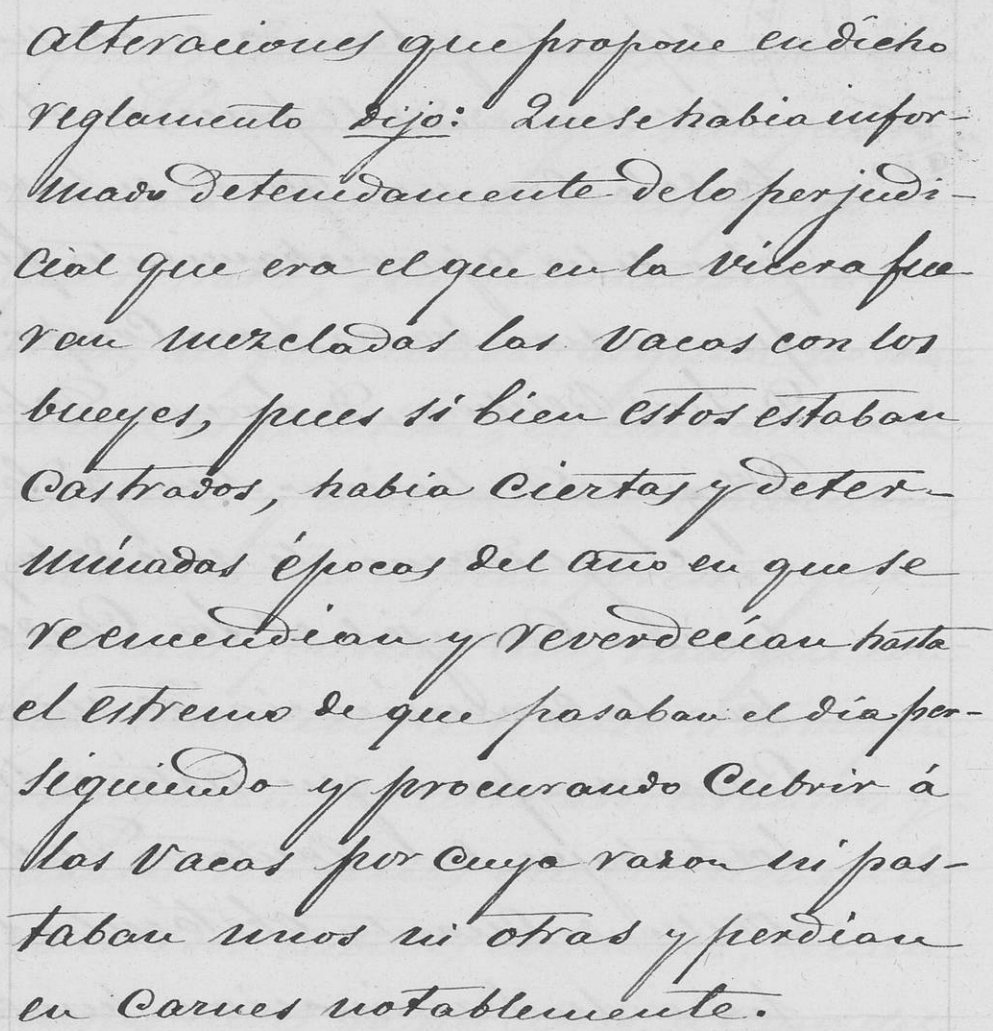 alteraciones que propone en dicho
reglamento dijo: Que se habia infor-
mado detenidamente de lo perjudi-
cial que era el que en la vicera fue
ran mezcladas las vacas con los
bueyes, pues si bien estos estaban
castrados, habia ciertas y deter-
minadas épocas del año en que se
reencendian y reverdecian hasta
el estremo de que pasaban el día per-
siguiendo y procurando cubrir á
las vacas por cuya razon ni pas-
taban unos ni otras y perdian
en carnes notablemente.